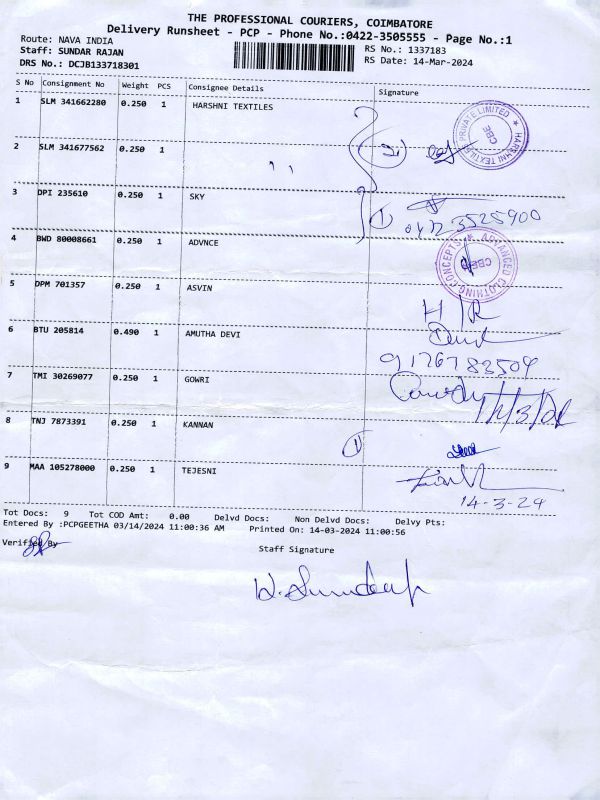 THE PROFESSIONAL COURIERS, COIMBATORE
Delivery Runsheet - PCP - Phone No.:0422-3505555 - Page No.:1
Route: NAVA INDIA
RS No.: 1337183
Staff: SUNDAR RAJAN
RS Date: 14-Mar-2024
DRS No.: DCJB133718301
S No Consignment No Weight PCS Consignee Details Signature
1 SLM 341662280 0.250 1 HARSHNI TEXTILES
HARSHNI TEXTILES PRIVATE LIMITED
CBE
2 SLM 341677562 0.250 1
3 DPI 235610 0.250 1 SKY
1
0422 3525900
4 BWD 80008661 0.250 1 ADVNCE
ADVANCED CLOTHING CONCEPTS
CBE
5 DPM 701357 0.250 1 ASVIN
6 BTU 205814 0.490 1 AMUTHA DEVI
9176783504
7 TMI 30269077 0.250 1 GOWRI
8 TNJ 7873391 0.250 1 KANNAN
1
9 MAA 105278000 0.250 1 TEJESNI
14-3-24
Tot Docs: 9 Tot COD Amt: 0.00 Delvd Docs: Non Delvd Docs: Delvy Pts:
Entered By :PCPGEETHA 03/14/2024 11:00:36 AM Printed On: 14-03-2024 11:00:56
Verified By
Staff Signature